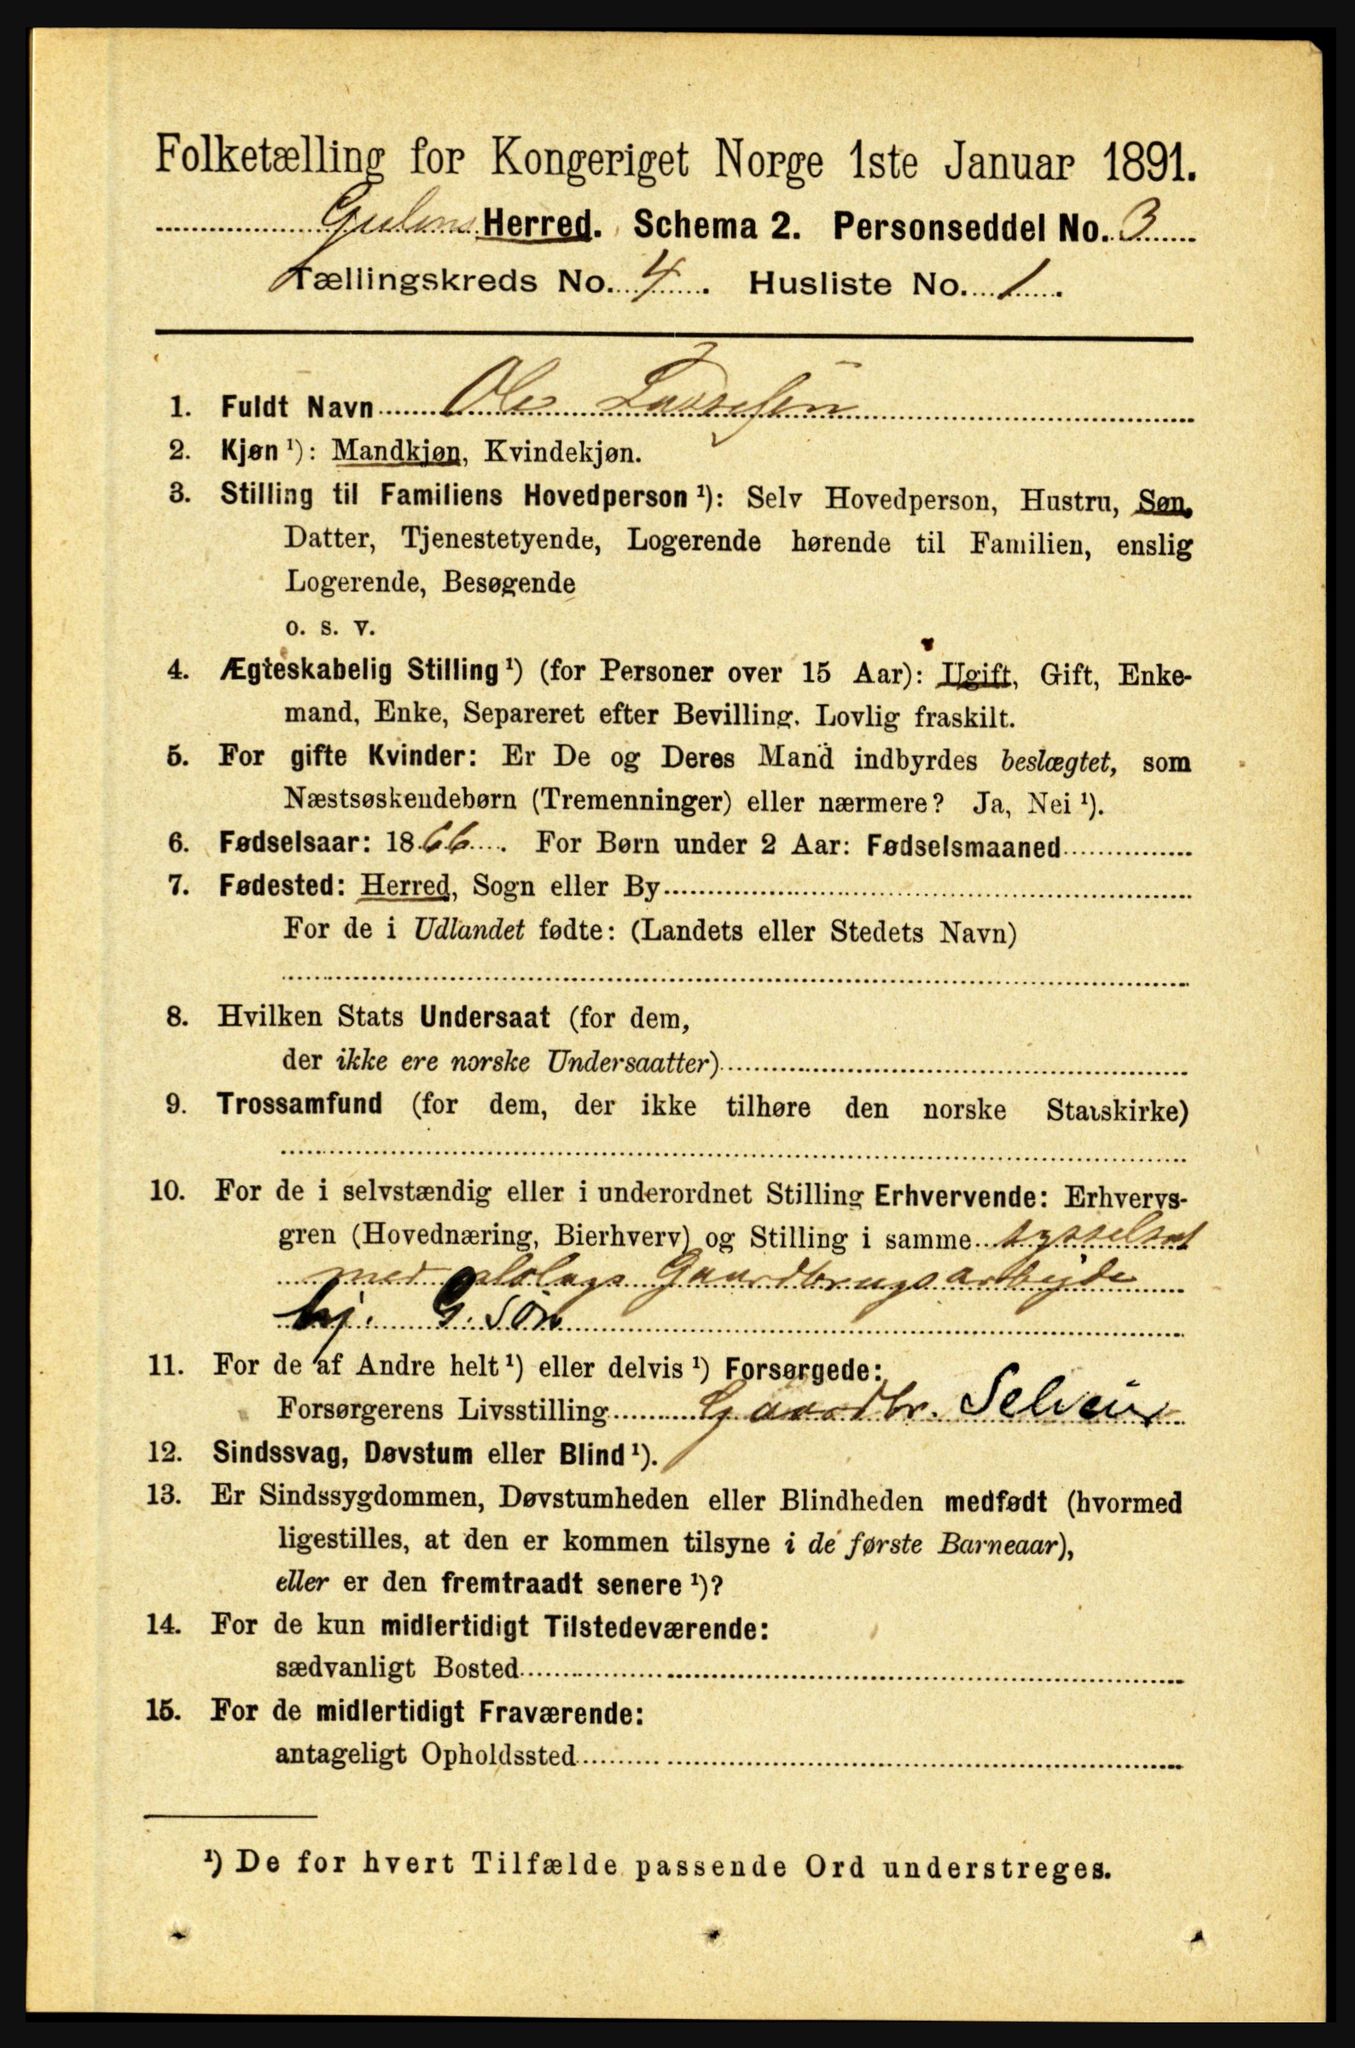 Folketælling for Kongeriget Norge 1ste Januar 1891.
Gulens Herred. Schema 2. Personseddel No. 3
Tællingskreds No. 4. Husliste No. 1.
1. Fuldt Navn Ole Lassesen
2. Kjøn ¹): Mandkjøn, Kvindekjøn.
3. Stilling til Familiens Hovedperson ¹): Selv Hovedperson, Hustru, Søn,
Datter, Tjenestetyende, Logerende hørende til Familien, enslig
Logerende, Besøgende
o. s. v.
4. Ægteskabelig Stilling ¹) (for Personer over 15 Aar): Ugift, Gift, Enke-
mand, Enke, Separeret efter Bevilling. Lovlig fraskilt.
5. For gifte Kvinder: Er De og Deres Mand indbyrdes beslægtet, som
Næstsøskendebørn (Tremenninger) eller nærmere? Ja, Nei ¹).
6. Fødselsaar: 1866. For Børn under 2 Aar: Fødselsmaaned
7. Fødested: Herred, Sogn eller By
For de i Udlandet fødte: (Landets eller Stedets Navn)
8. Hvilken Stats Undersaat (for dem,
der ikke ere norske Undersaatter)
9. Trossamfund (for dem, der ikke tilhøre den norske Statskirke)
10. For de i selvstændig eller i underordnet Stilling Erhvervende: Erhvervs-
gren (Hovednæring, Bierhverv) og Stilling i samme sysselsat
med alslags Gaardbrugsarbejde
hj. G. søn
11. For de af Andre helt ¹) eller delvis ¹) Forsørgede:
Forsørgerens Livsstilling Gaardbr. Selveier
12. Sindssvag, Døvstum eller Blind ¹).
13. Er Sindssygdommen, Døvstumheden eller Blindheden medfødt (hvormed
ligestilles, at den er kommen tilsyne i de første Barneaar),
eller er den fremtraadt senere ¹)?
14. For de kun midlertidigt Tilstedeværende:
sædvanligt Bosted
15. For de midlertidigt Fraværende:
antageligt Opholdssted
¹) De for hvert Tilfælde passende Ord understreges.